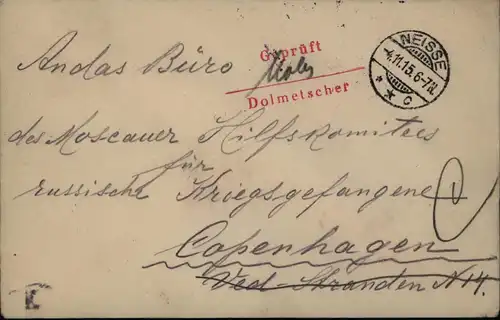 Geprüft
Dolmetscher
NEISSE
4.11.15.6-7N.
* * c
Andas Büro
des Moscauer Hilfskomitees
für
russische Kriegsgefangene
Copenhagen
Ved-Stranden N 14.